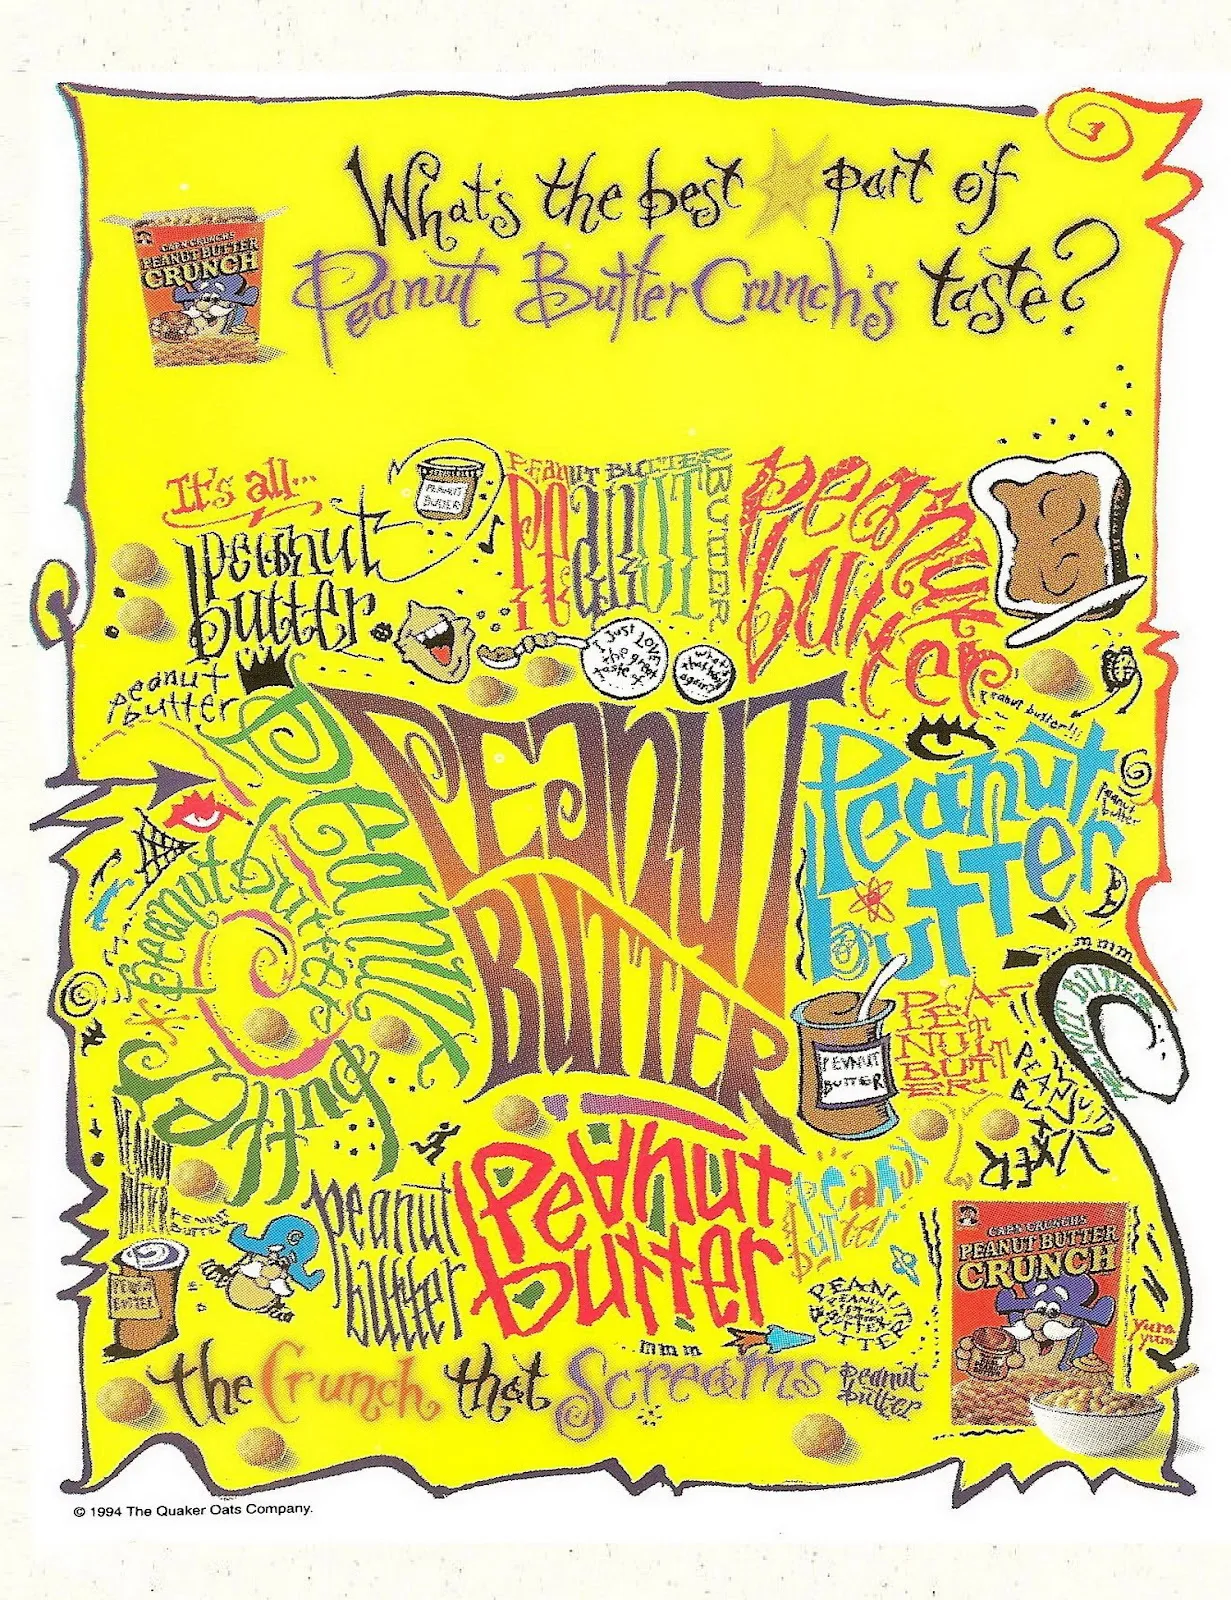 What's the best part of
Peanut Butter Crunch's taste?
CAP'N CRUNCH'S
PEANUT BUTTER
CRUNCH
It's all...
peanut
butter
PEANUT
BUTTER
PEANUT BUTTER
PEANUT
BUTTER
Peanut
butter
I just love
the great
taste of
what's
that
again?
peanut
butter
peanut butter!!!
PEANUT
BUTTER
Peanut
butter
peanut
butter
Peanut
Butter
peanut
butter
mmm
PEANUT BUTTER
PEANUT
BUTTER
PEA
PEA
NUT
BUTT
ER
PEANUT
BUTTER
PEANUT
BUTTER
peanut
butter
PEANUT
BUTTER
peanut
butter
Peanut
butter
Peanut
butter
PEANUT
BUTTER
CAP'N CRUNCH'S
PEANUT BUTTER
CRUNCH
yum
yum
mmm
the Crunch that Screams
peanut
butter
© 1994 The Quaker Oats Company.